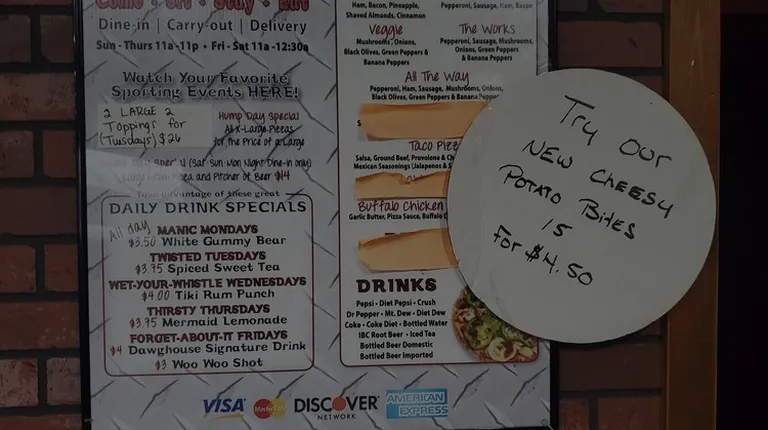 Come • Sit • Stay • Eat
Dine-in | Carry-out | Delivery
Sun - Thurs 11a -11p • Fri - Sat 11a -12:30a
Watch Your Favorite
Sporting Events HERE!
2 LARGE 2
Toppings for
(Tuesdays) $26
Hump Day Special
All X-Large Pizzas
for the Price of a Large
(Sat-Sun-Mon Night Dine-in only)
Pizza and Pitcher of Beer $14
Take advantage of these great
DAILY DRINK SPECIALS
All day
MANIC MONDAYS
$3.50 White Gummy Bear
TWISTED TUESDAYS
$3.75 Spiced Sweet Tea
WET-YOUR-WHISTLE WEDNESDAYS
$4.00 Tiki Rum Punch
THIRSTY THURSDAYS
$3.75 Mermaid Lemonade
FORGET-ABOUT-IT FRIDAYS
$4 Dawghouse Signature Drink
$3 Woo Woo Shot
Ham, Bacon, Pineapple,
Shaved Almonds, Cinnamon
Pepperoni, Sausage, Ham, Bacon
Veggie
Mushrooms, Onions,
Black Olives, Green Peppers
& Banana Peppers
The Works
Pepperoni, Sausage, Mushrooms,
Onions, Green Peppers
& Banana Peppers
All The Way
Pepperoni, Ham, Sausage, Mushrooms, Onions,
Black Olives, Green Peppers & Banana Peppers
Taco Pizz
Salsa, Ground Beef, Provolone & Ch
Mexican Seasonings (Jalapenos & S
Buffalo Chicken
Garlic Butter, Pizza Sauce, Buffalo C
DRINKS
Pepsi • Diet Pepsi • Crush
Dr Pepper • Mt. Dew • Diet Dew
Coke • Coke Diet • Bottled Water
IBC Root Beer • Iced Tea
Bottled Beer Domestic
Bottled Beer Imported
VISA
MasterCard
DISCOVER
NETWORK
AMERICAN
EXPRESS
Try our
NEW Cheesy
Potato Bites
15
For $4.50